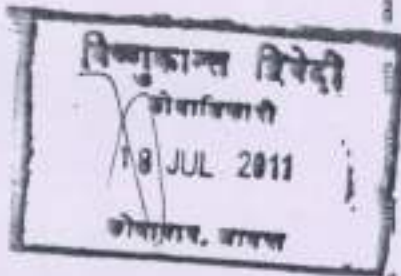 विष्णुकान्त द्विवेदी
कोषाधिकारी
18 JUL 2011
कोषागार,